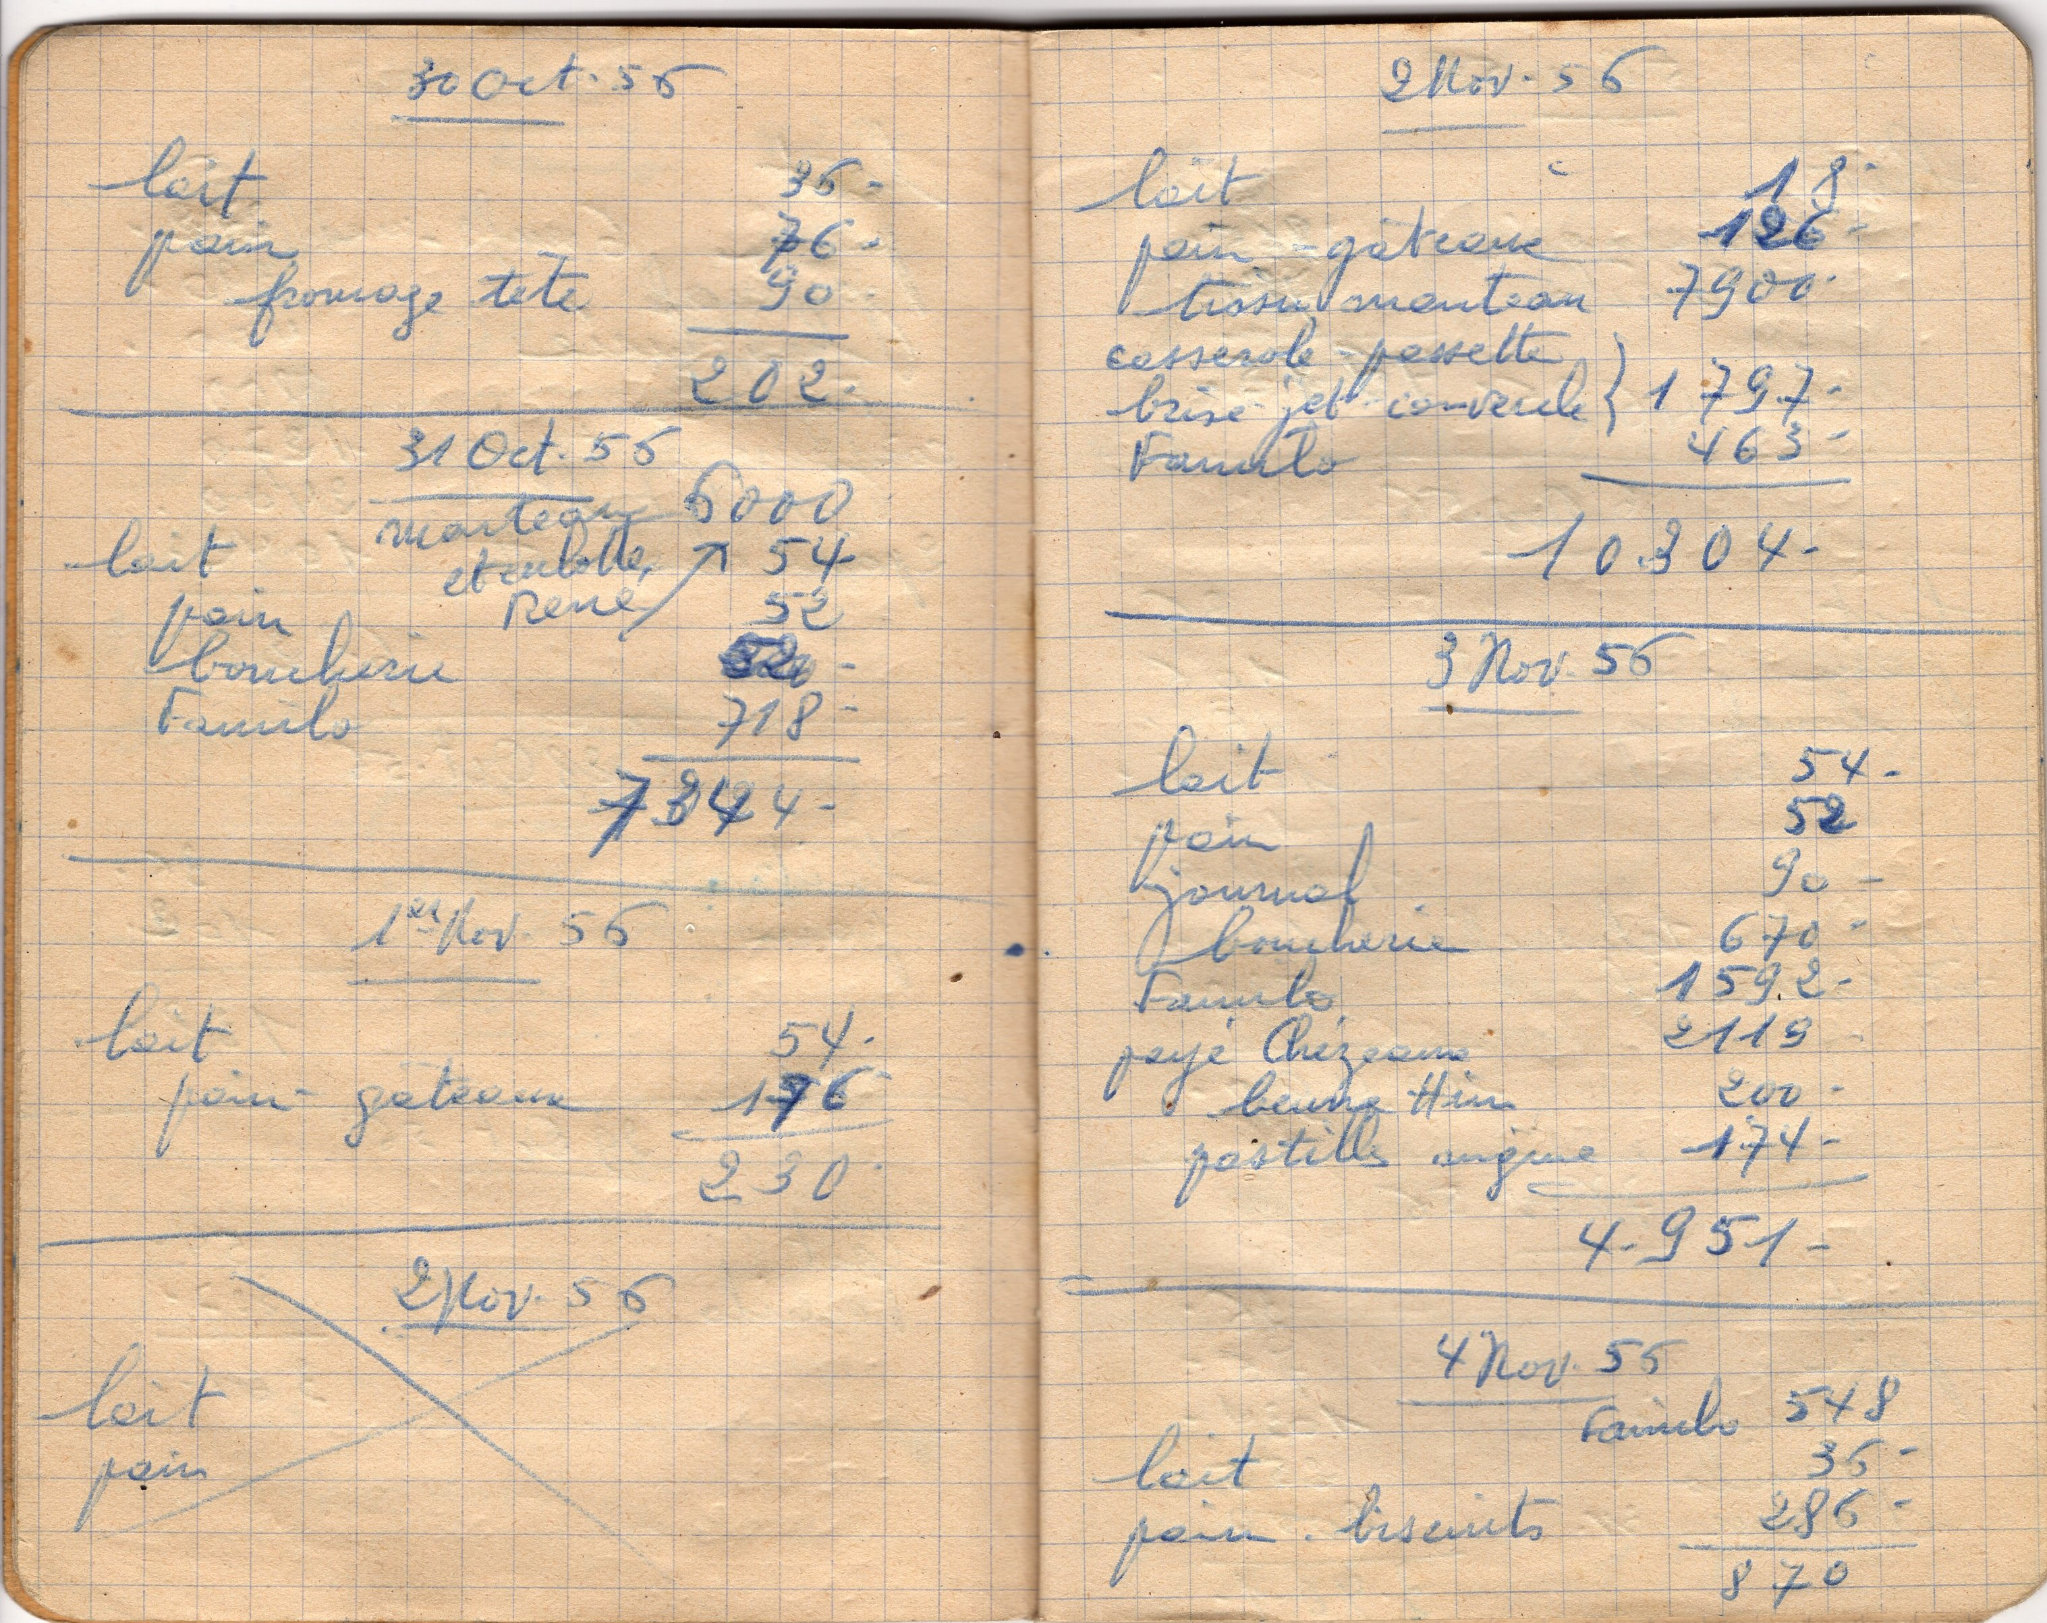 30 Oct. 56
lait 36-
pain 76-
fromage tête 90-
202-
31 Oct. 56
manteau 6000
lait et culotte 54
pain René 52
boucherie
Familo 718-
7344-
1er Nov. 56
lait 54-
pain - gâteaux 176-
230-
2 Nov. 56
lait
pain
2 Nov. 56
lait 18-
pain - gâteaux 126-
tissu manteau 7900-
casserole - passette
brise-jet - couvercle } 1797-
Familo 463-
10.304-
3 Nov. 56
lait 54-
pain 52
journal 90-
boucherie 670-
Familo 1592-
payé Chézeaux 2119-
beurre 200-
pastilles angine 174-
4.951-
4 Nov. 56
Familo 548
lait 36-
pain. biscuits 286-
870